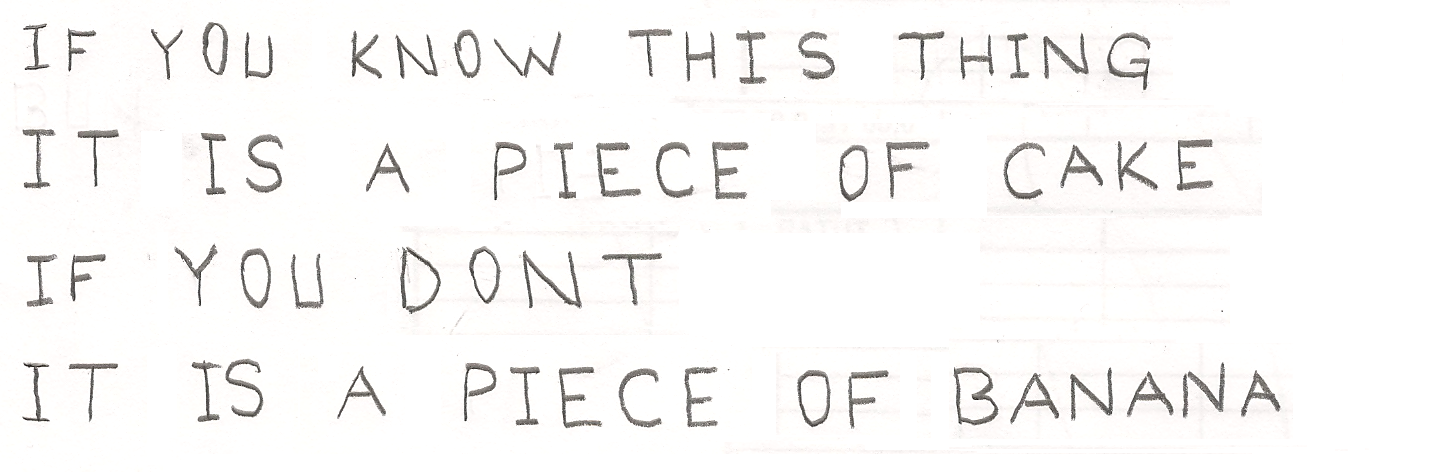 IF YOU KNOW THIS THING
IT IS A PIECE OF CAKE
IF YOU DONT
IT IS A PIECE OF BANANA